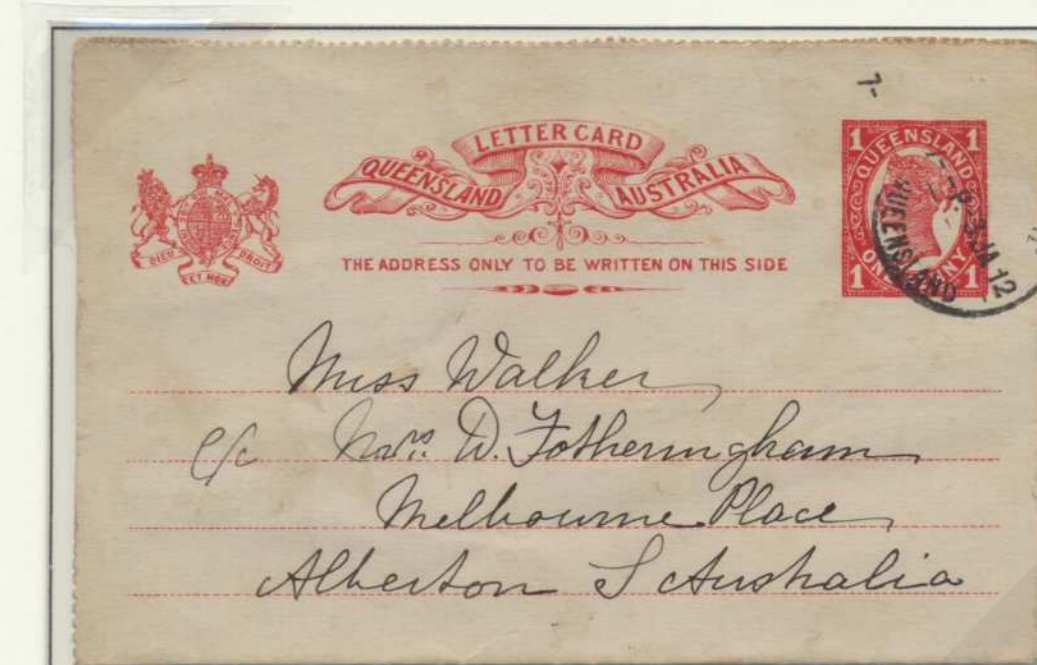 LETTER CARD
QUEENSLAND AUSTRALIA
THE ADDRESS ONLY TO BE WRITTEN ON THIS SIDE
DIEU ET MON DROIT
1 QUEENSLAND 1
1 ONE PENNY 1
QUEENSLAND
3 JA 12
Miss Walker
c/c Mrs D. Fotheringham
Melbourne Place
Alberton S Australia